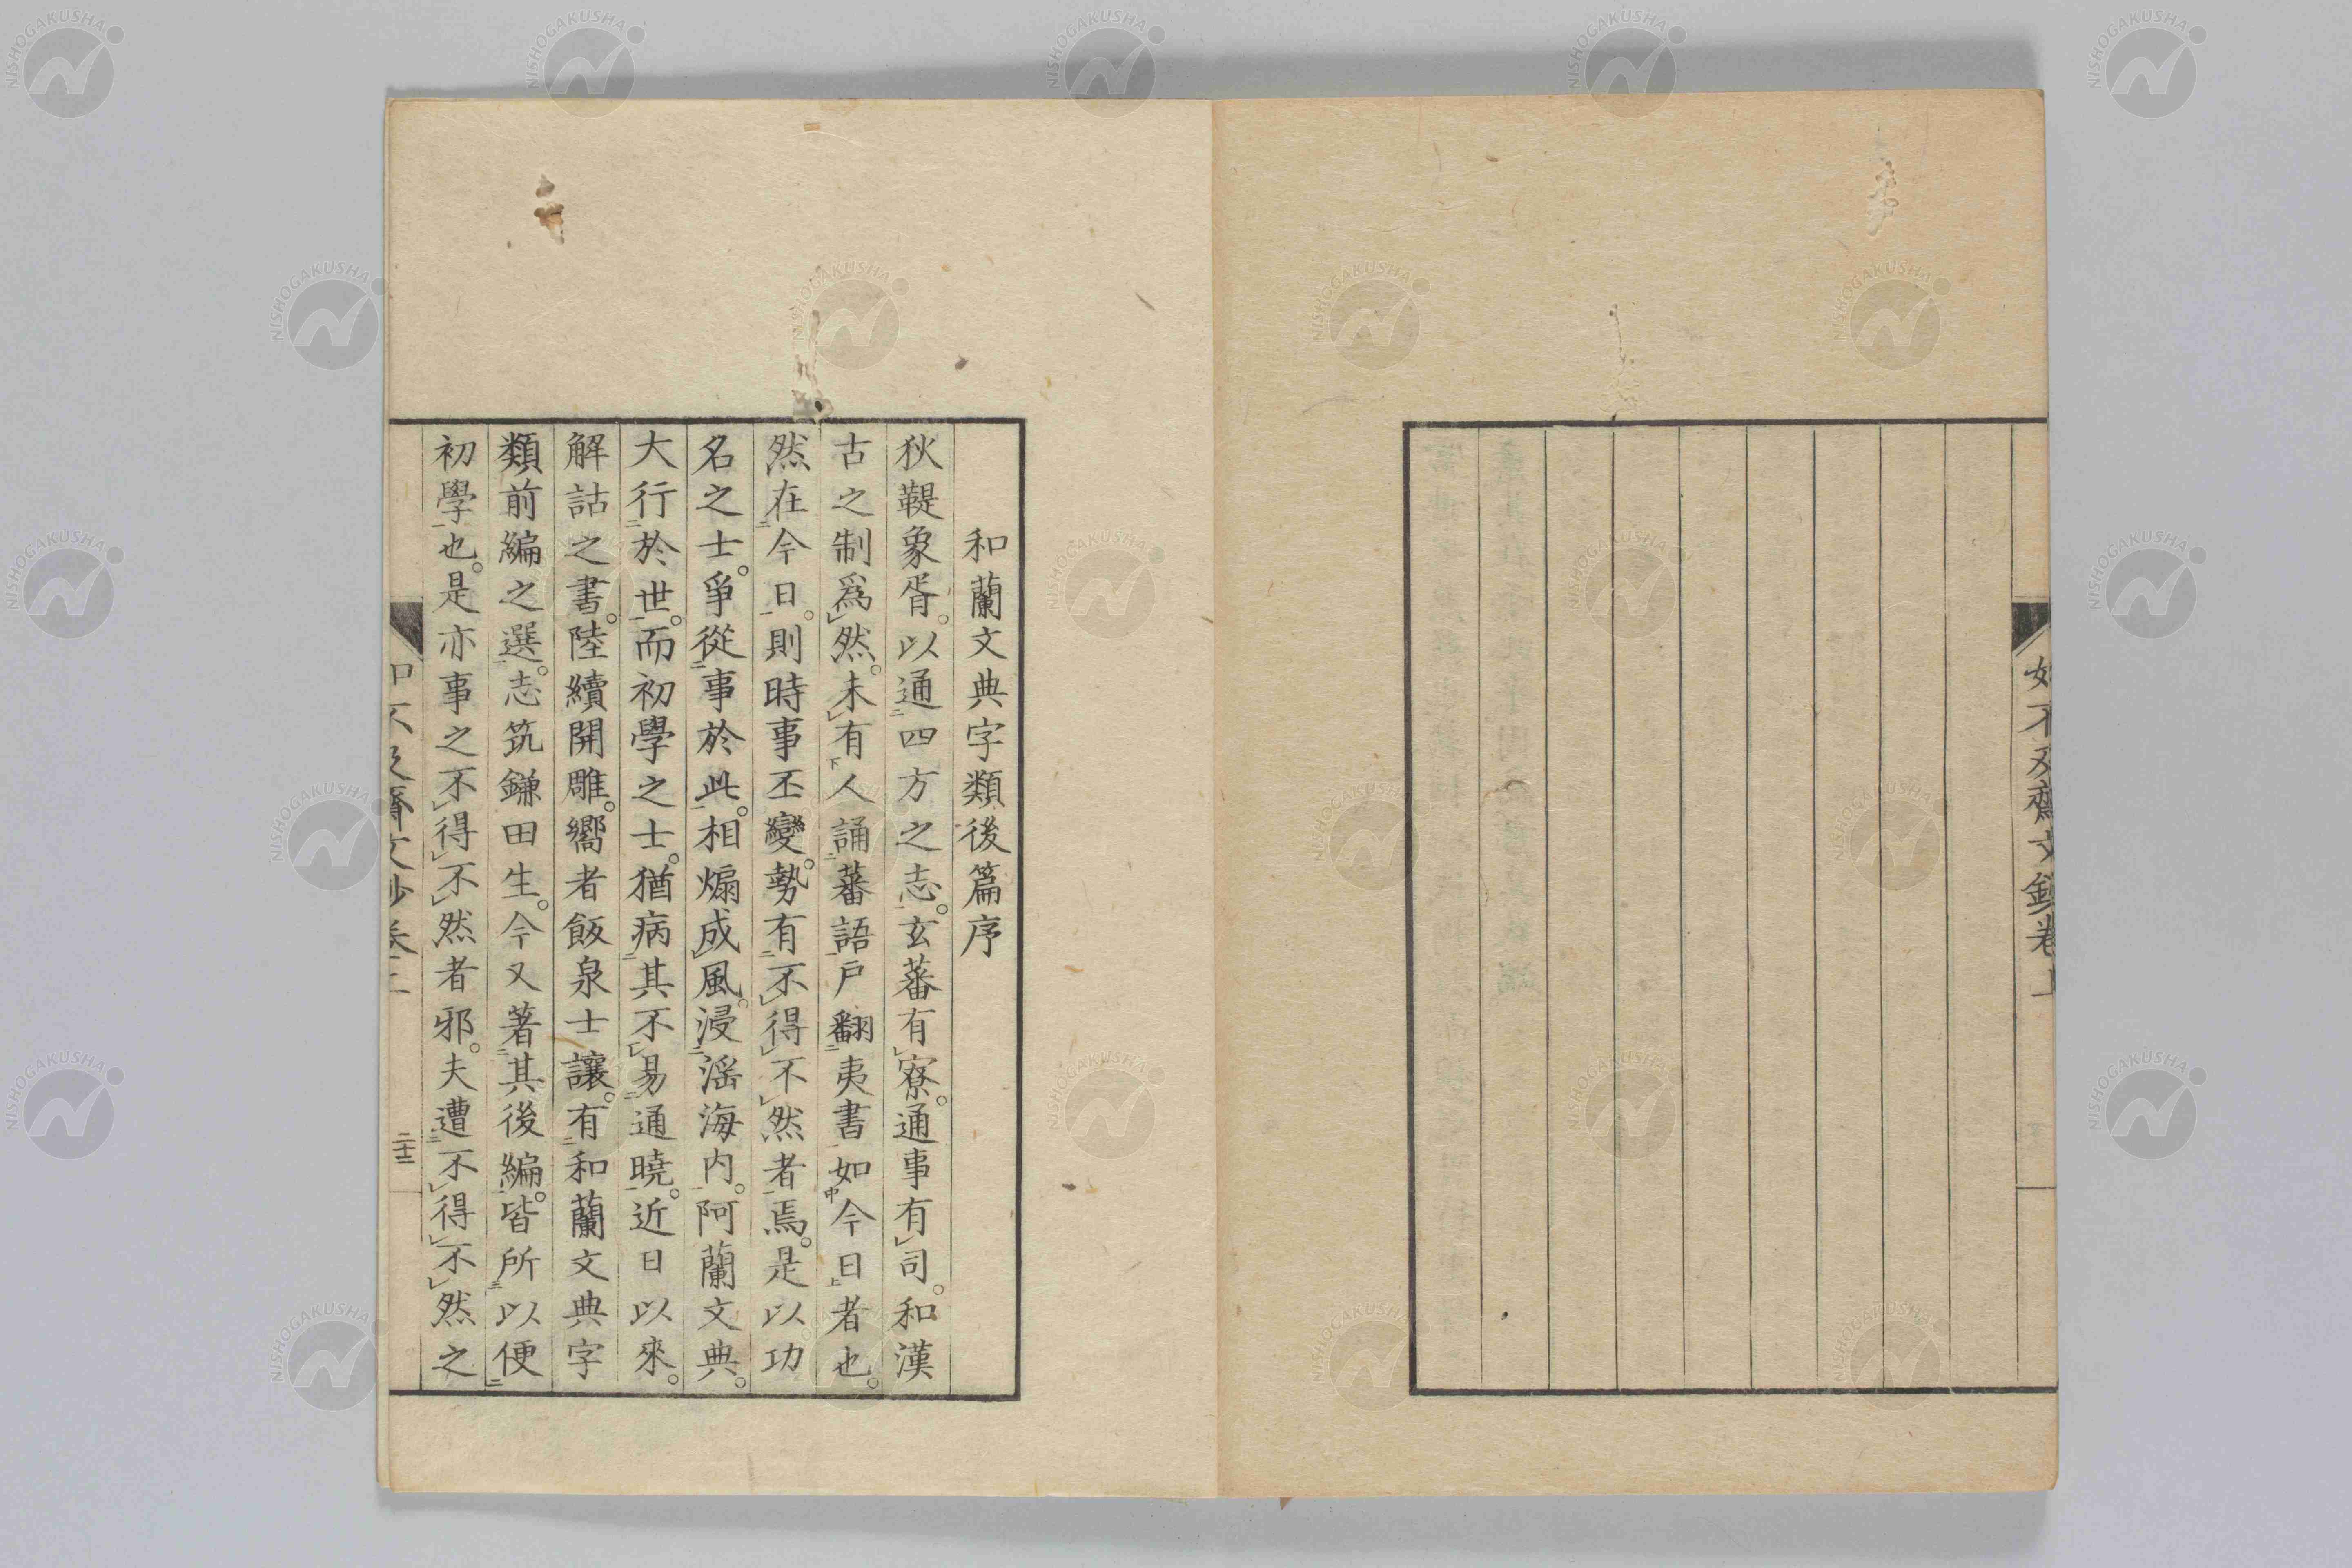 如不及齋文鈔卷上
和蘭文典字類後篇序
狄鞮象胥。以通二四方之志。玄蕃有レ寮。通事有レ司。和漢
古之制爲レ然。未レ有下人誦二蕃語一戸翻二夷書一如中今日上者也。
然在二今日一。則時事丕變。勢有二不レ得レ不レ然者一焉。是以功
名之士。爭從二事於此一。相煽成レ風。浸二滛海内一。阿蘭文典。
大行二於世一。而初學之士。猶病二其不レ易二通曉一。近日以來。
解詁之書。陸續開雕。嚮者飯泉士讓。有二和蘭文典字
類前編之選一。志筑鎌田生。今又著二其後編一。皆所三以便二
初學一也。是亦事之不レ得レ不レ然者邪。夫遭二不レ得レ不レ然之
二十二
NISHOGAKUSHA